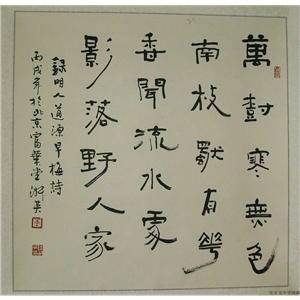 萬樹寒無色
南枝獨有華
香聞流水處
影落野人家
錄明人道源早梅詩
丙戌年於北京富葉堂